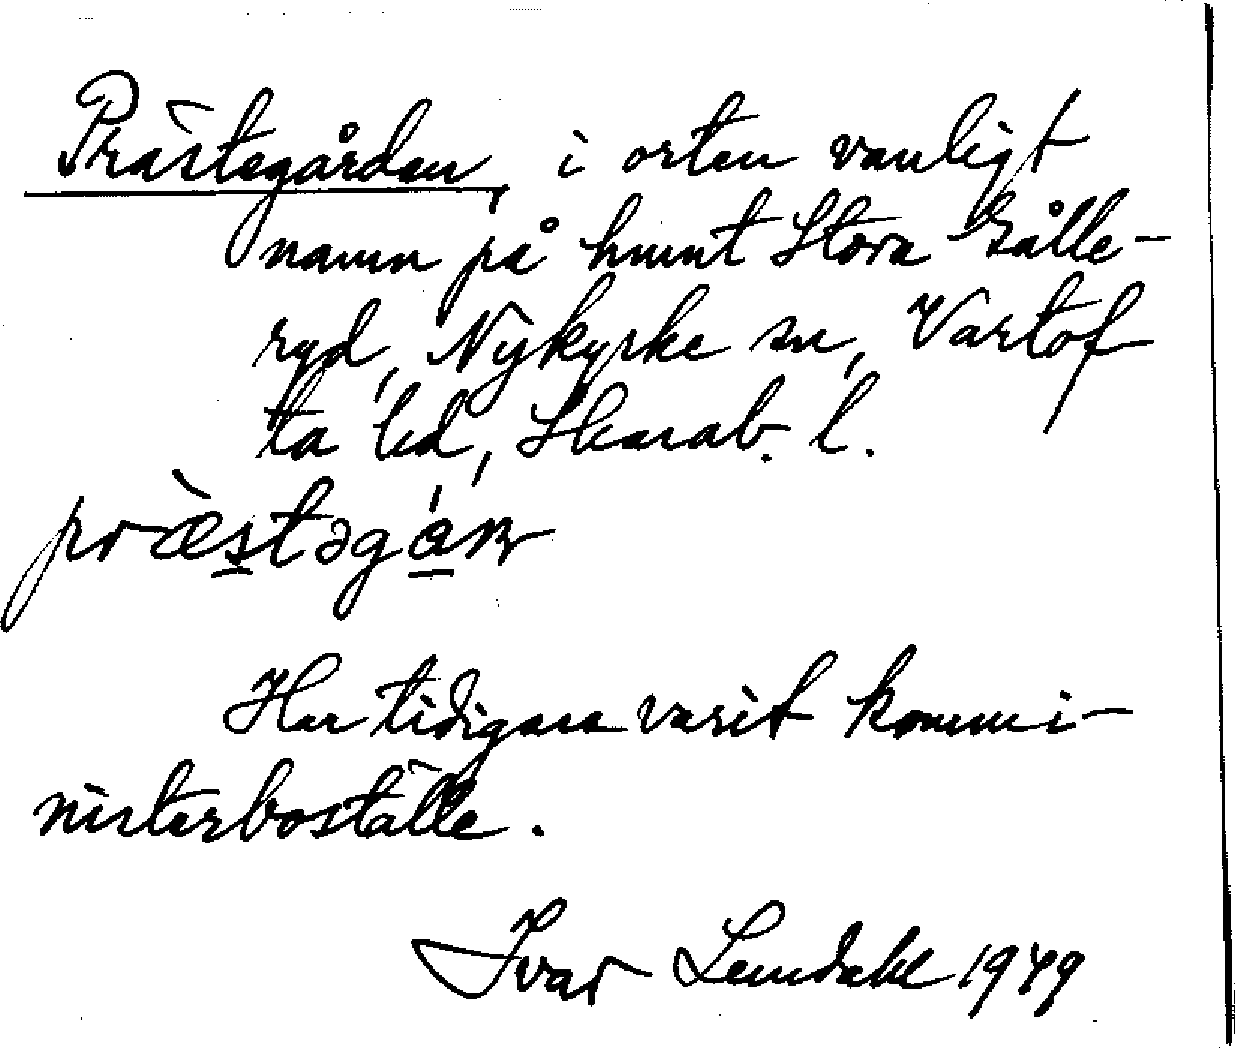 Prästegården, i orten vanligt
namn på hmnt Stora Kålle-
ryd, Nykyrke sn, Vartof
ta hd, Skarab. l.
præ̀stəgá
Har tidigare varit kommi-
nisterboställe.
Ivar Lundahl 1949